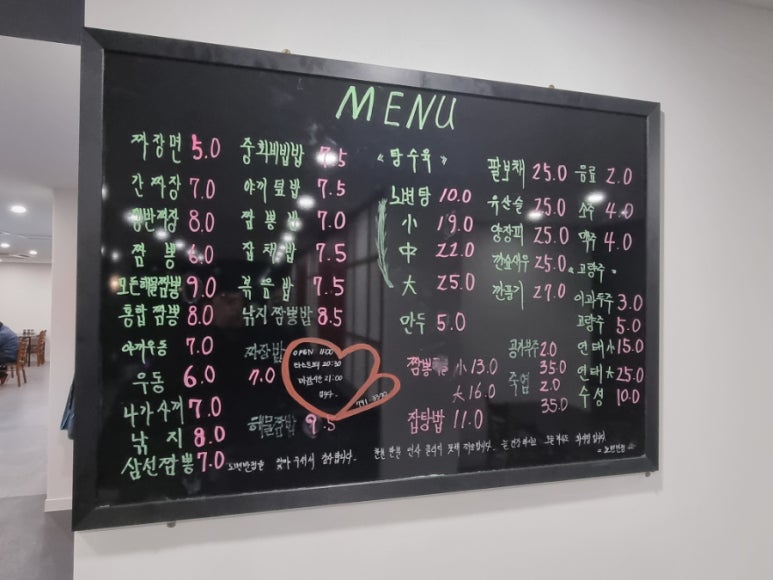 MENU
짜장면 5.0
간짜장 7.0
쟁반짜장 8.0
짬뽕 6.0
모든해물짬뽕 9.0
홍합짬뽕 8.0
야끼우동 7.0
우동 6.0
나가사끼 7.0
낙지 8.0
삼선짬뽕 7.0
중화비빔밥 7.5
야끼덮밥 7.5
짬뽕밥 7.0
잡채밥 7.5
볶음밥 7.5
낙지짬뽕밥 8.5
짜장밥
7.0
해물짬밥 9.5
OPEN 11:00
20:30
마감시간 21:00
《탕수육》
노변탕 10.0
小 19.0
中 22.0
大 25.0
만두 5.0
짬뽕 小 13.0
大 16.0
잡탕밥 11.0
팔보채 25.0
유산슬 25.0
양장피 25.0
깐쇼새우 25.0
깐풍기 27.0
공자부주 20
35.0
죽엽 2.0
35.0
음료 2.0
소주 4.0
맥주 4.0
《고량주》
이과두주 3.0
고량주 5.0
연태小 15.0
연태大 25.0
수성 10.0
노변반점을 찾아 주셔서 감사합니다.
- 노변반점 -